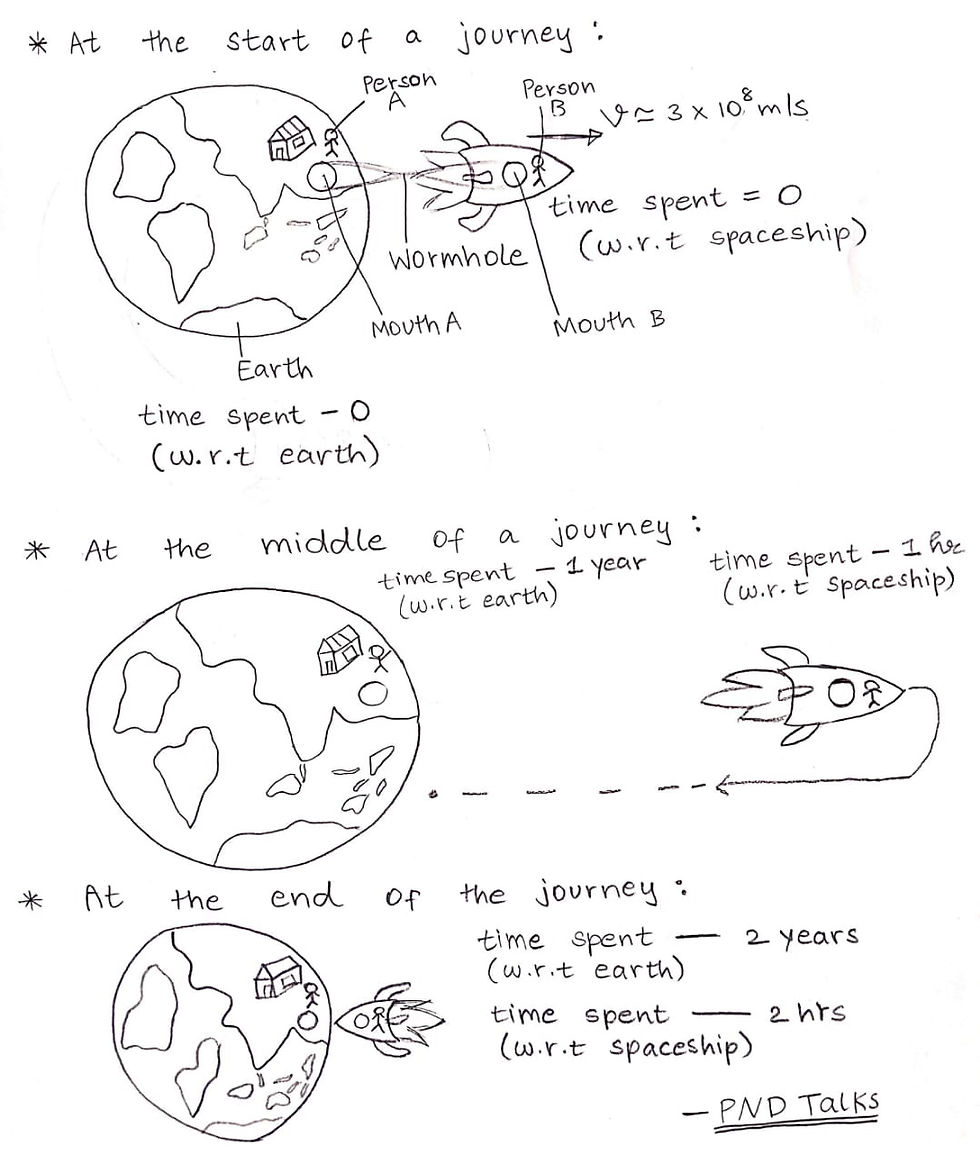 * At the start of a journey :
Person
A
Person
B
v ≃ 3 × 10⁸ m/s
time spent = 0
(w.r.t spaceship)
Wormhole
Mouth A
Mouth B
Earth
time spent - 0
(w.r.t earth)
* At the middle of a journey :
time spent - 1 year
(w.r.t earth)
time spent - 1 hr
(w.r.t spaceship)
* At the end of the journey :
time spent — 2 years
(w.r.t earth)
time spent — 2 hrs
(w.r.t spaceship)
- PND Talks